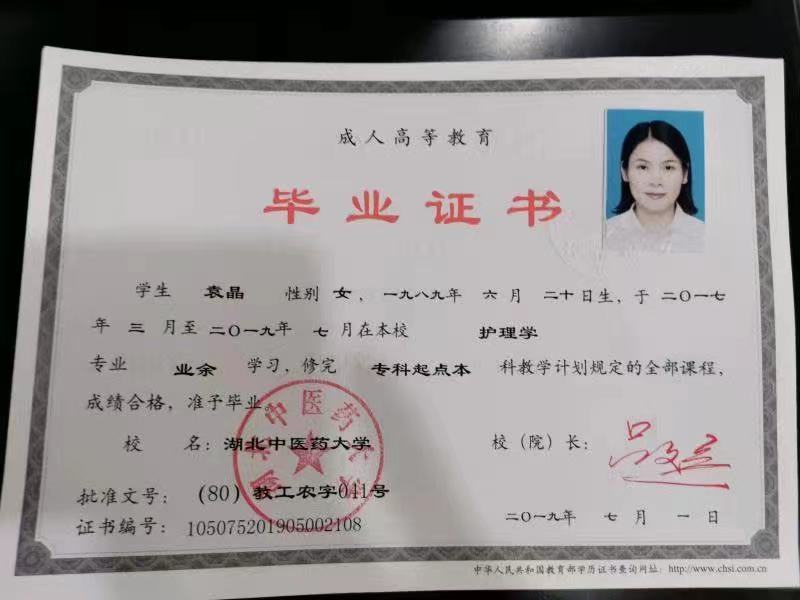 成人高等教育
毕业证书
学生 袁晶 性别 女，一九八九年 六 月 二十日生，于 二〇一七
年 三 月至 二〇一九年 七 月在本校 护理学
专业 业余 学习，修完 专科起点本 科教学计划规定的全部课程，
成绩合格，准予毕业。
校 名：湖北中医药大学 校（院）长：
批准文号：（80）教工农字041号
证书编号：105075201905002108 二〇一九年 七 月 一 日
中华人民共和国教育部学历证书查询网址：http://www.chsi.com.cn